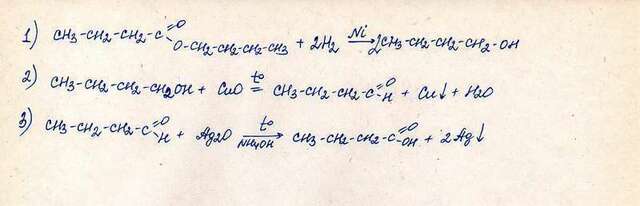 1) CH3-CH2-CH2-C=O O-CH2-CH2-CH2-CH3 + 2H2 Ni → 2CH3-CH2-CH2-CH2-OH
2) CH3-CH2-CH2-CH2OH + CuO t° = CH3-CH2-CH2-C=O H + Cu↓ + H2O
3) CH3-CH2-CH2-C=O H + Ag2O t° → NH4OH CH3-CH2-CH2-C=O OH + 2Ag↓